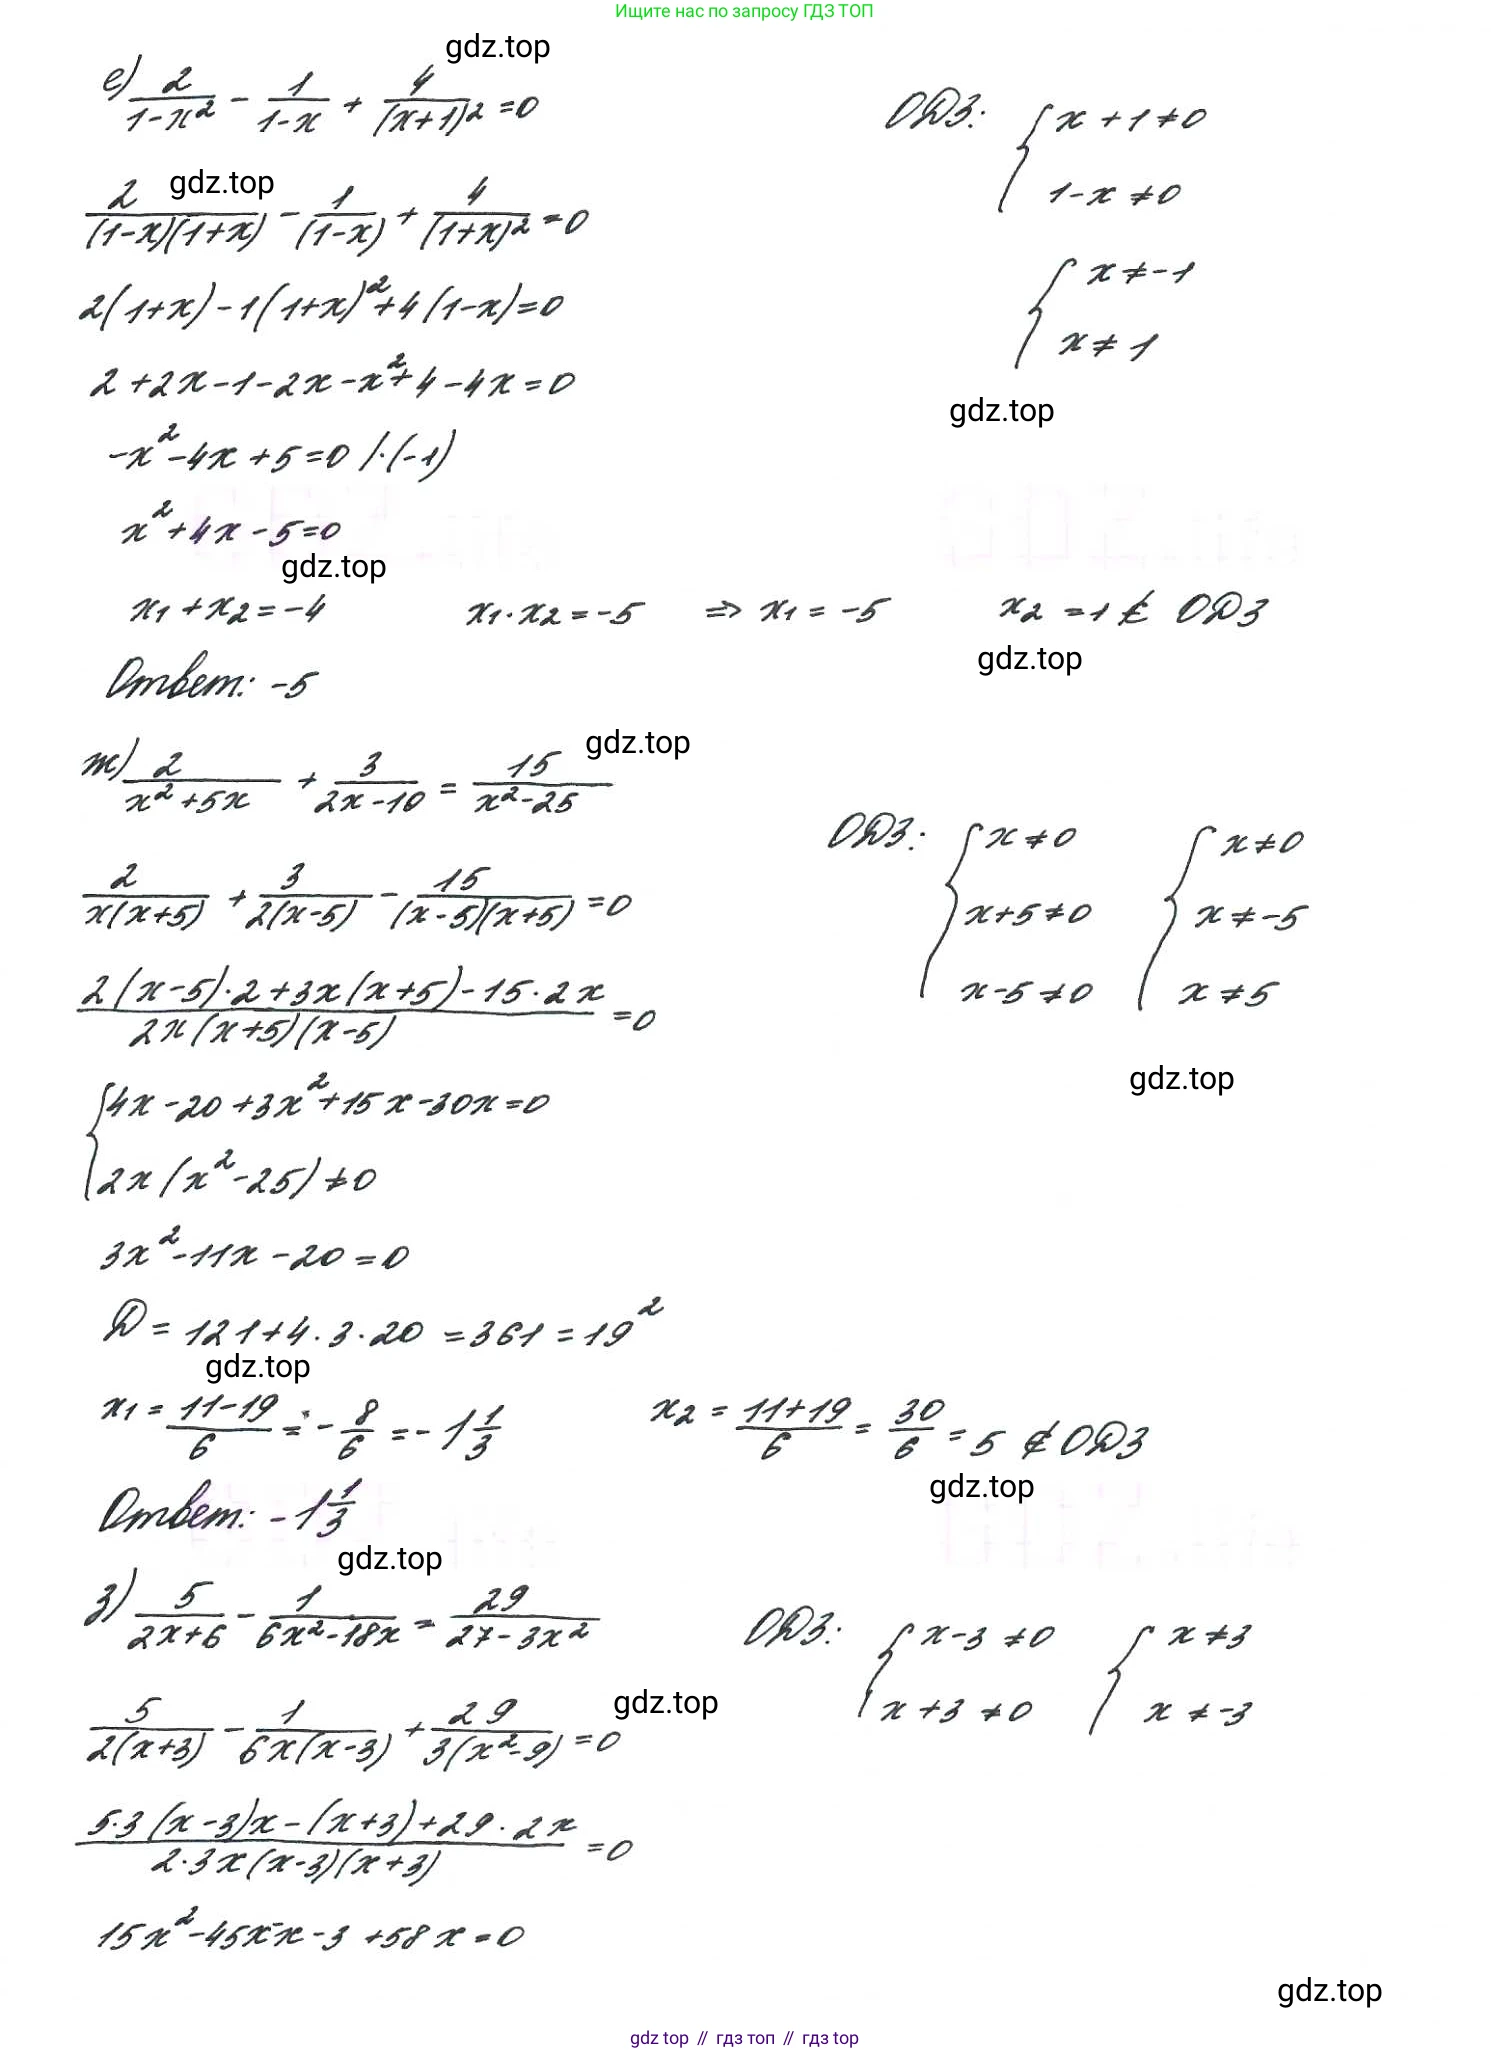 Ищите нас по запросу ГДЗ ТОП
gdz.top
е) 2/(1-x²) - 1/(1-x) + 4/(x+1)² = 0
ОДЗ: { x+1≠0
1-x≠0
gdz.top
2/((1-x)(1+x)) - 1/(1-x) + 4/(1+x)² = 0
{ x≠-1
x≠1
2(1+x)-1(1+x)²+4(1-x)=0
2+2x-1-2x-x²+4-4x=0
gdz.top
-x²-4x+5=0 /·(-1)
x²+4x-5=0
gdz.top
x₁+x₂=-4 x₁·x₂=-5 ⇒ x₁=-5 x₂=1 ∉ ОДЗ
gdz.top
Ответ: -5
gdz.top
ж) 2/(x²+5x) + 3/(2x-10) = 15/(x²-25)
ОДЗ: { x≠0 { x≠0
x+5≠0 x≠-5
x-5≠0 x≠5
2/(x(x+5)) + 3/(2(x-5)) - 15/((x-5)(x+5)) = 0
(2(x-5)·2+3x(x+5)-15·2x)/(2x(x+5)(x-5)) = 0
gdz.top
{ 4x-20+3x²+15x-30x=0
2x(x²-25)≠0
3x²-11x-20=0
D=121+4·3·20=361=19²
gdz.top
x₁=(11-19)/6=-8/6=-1 1/3 x₂=(11+19)/6=30/6=5 ∉ ОДЗ
gdz.top
Ответ: -1 1/3
gdz.top
з) 5/(2x+6) - 1/(6x²-18x) = 29/(27-3x²)
ОДЗ: { x-3≠0 { x≠3
x+3≠0 x≠-3
gdz.top
5/(2(x+3)) - 1/(6x(x-3)) + 29/(3(x²-9)) = 0
(5·3(x-3)x-(x+3)+29·2x)/(2·3x(x-3)(x+3)) = 0
15x²-45x-x-3+58x=0
gdz.top
gdz top // гдз топ // gdz top